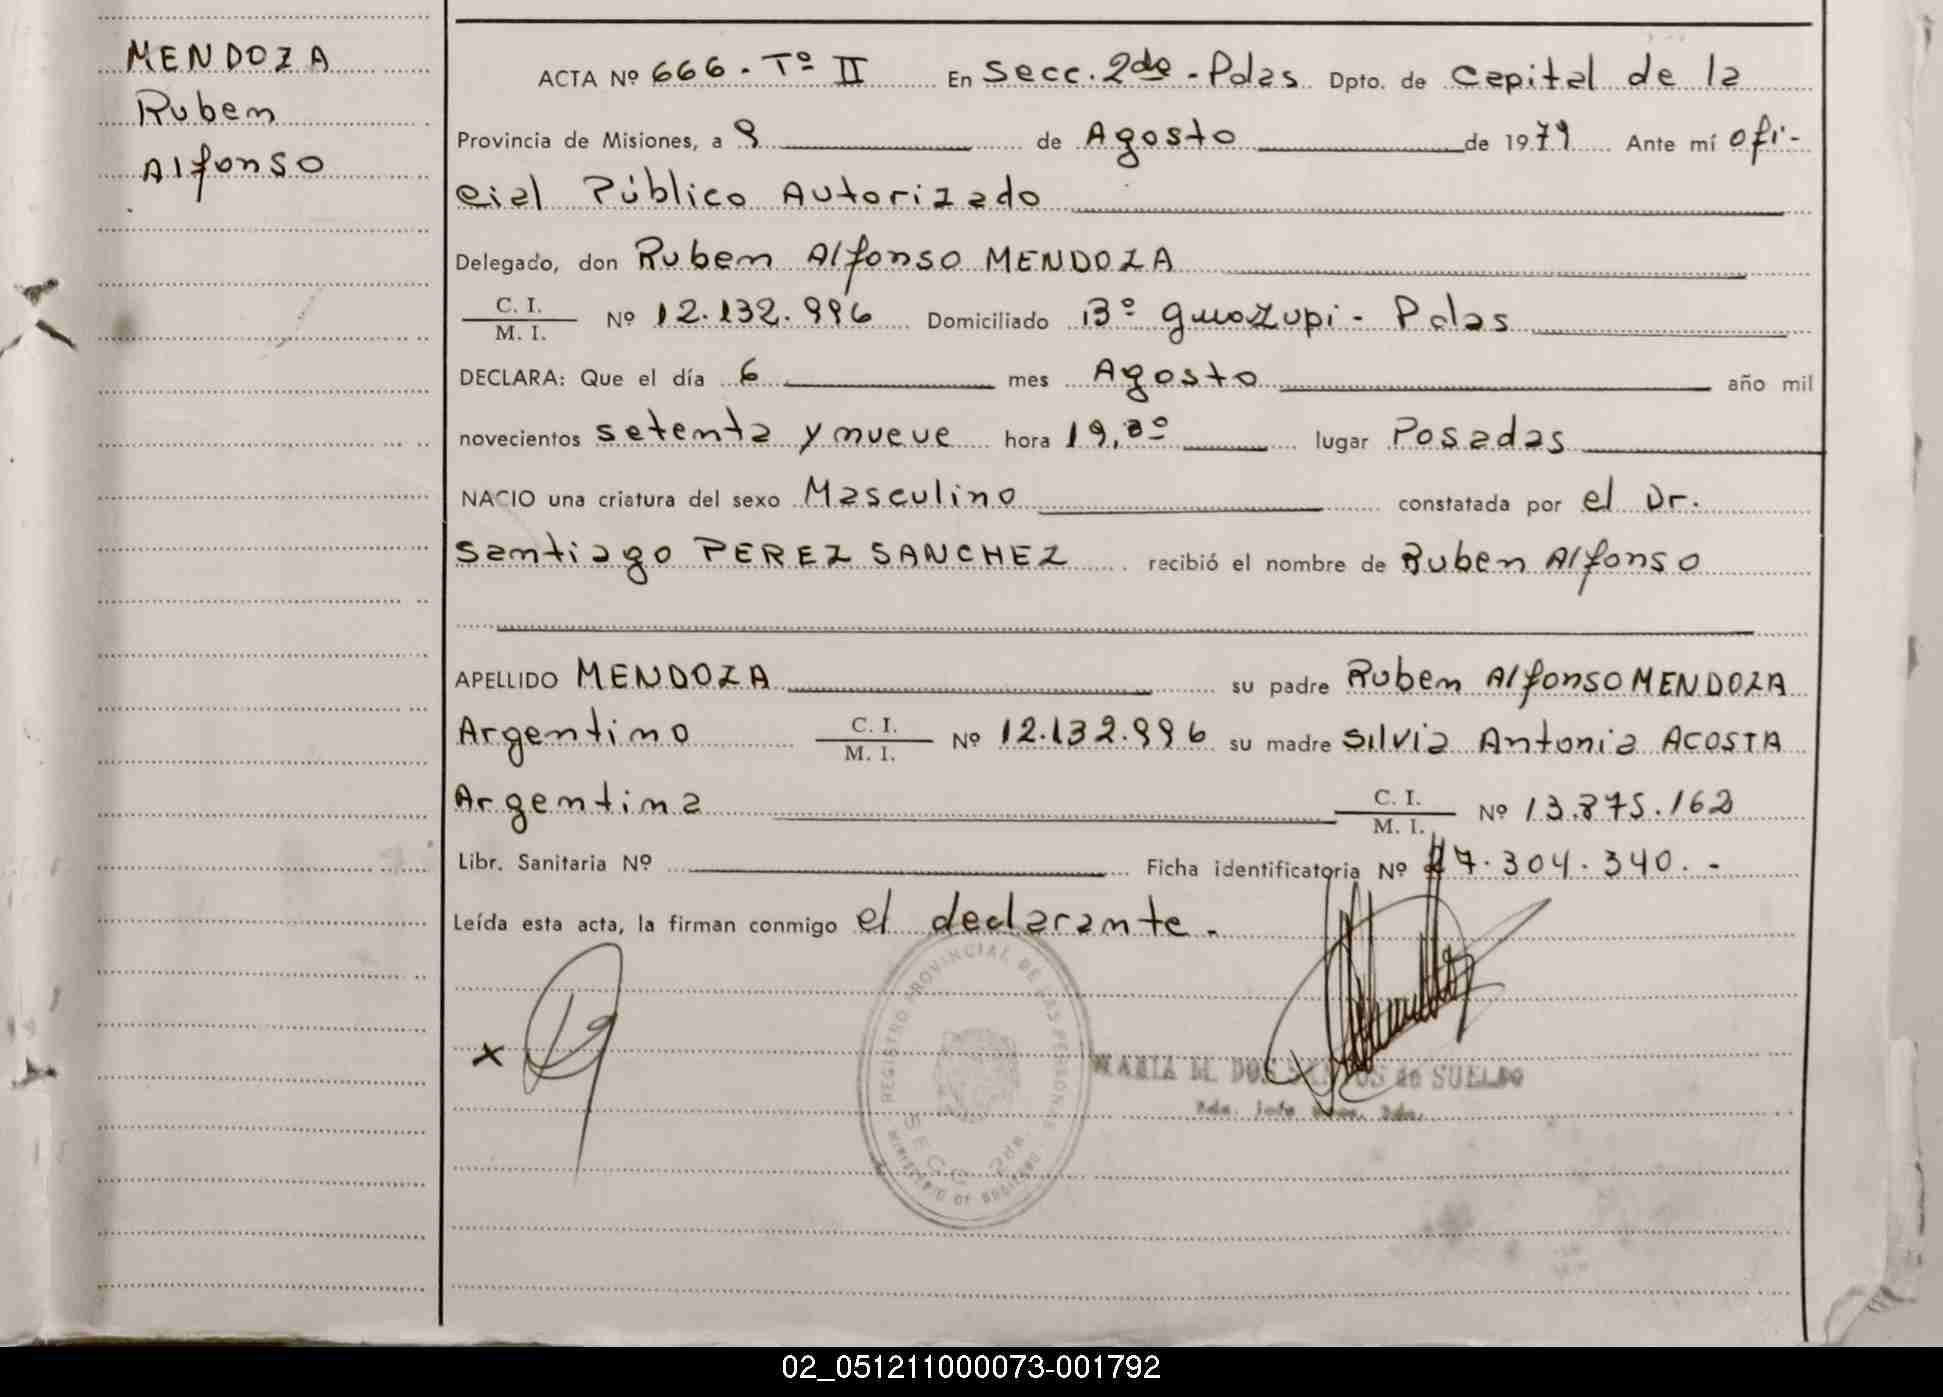 MENDOZA
Ruben
Alfonso
ACTA Nº 666 - Tº II En Secc. 2da - Pdas Dpto. de Capital de la
Provincia de Misiones, a 9 de Agosto de 1979 Ante mí ofi-
cial Público Autorizado
Delegado, don Ruben Alfonso MENDOZA
C. I.
M. I.
Nº 12.132.996 Domiciliado Bº Guazupi - Pdas
DECLARA: Que el día 6 mes Agosto año mil
novecientos setenta y nueve hora 19,30 lugar Posadas
NACIO una criatura del sexo Masculino constatada por el Dr.
Santiago PEREZ SANCHEZ recibió el nombre de Ruben Alfonso
APELLIDO MENDOZA su padre Ruben Alfonso MENDOZA
Argentino C. I.
M. I.
Nº 12.132.996 su madre Silvia Antonia ACOSTA
Argentina C. I.
M. I.
Nº 13.875.162
Libr. Sanitaria Nº Ficha identificatoria Nº 27.304.340.-
Leída esta acta, la firman conmigo el declarante.
x
REGISTRO PROVINCIAL DE LAS PERSONAS
SECC. 2da
MINISTERIO DE GOBIERNO
MARIA M. DOS SANTOS de SUELDO
02_051211000073-001792